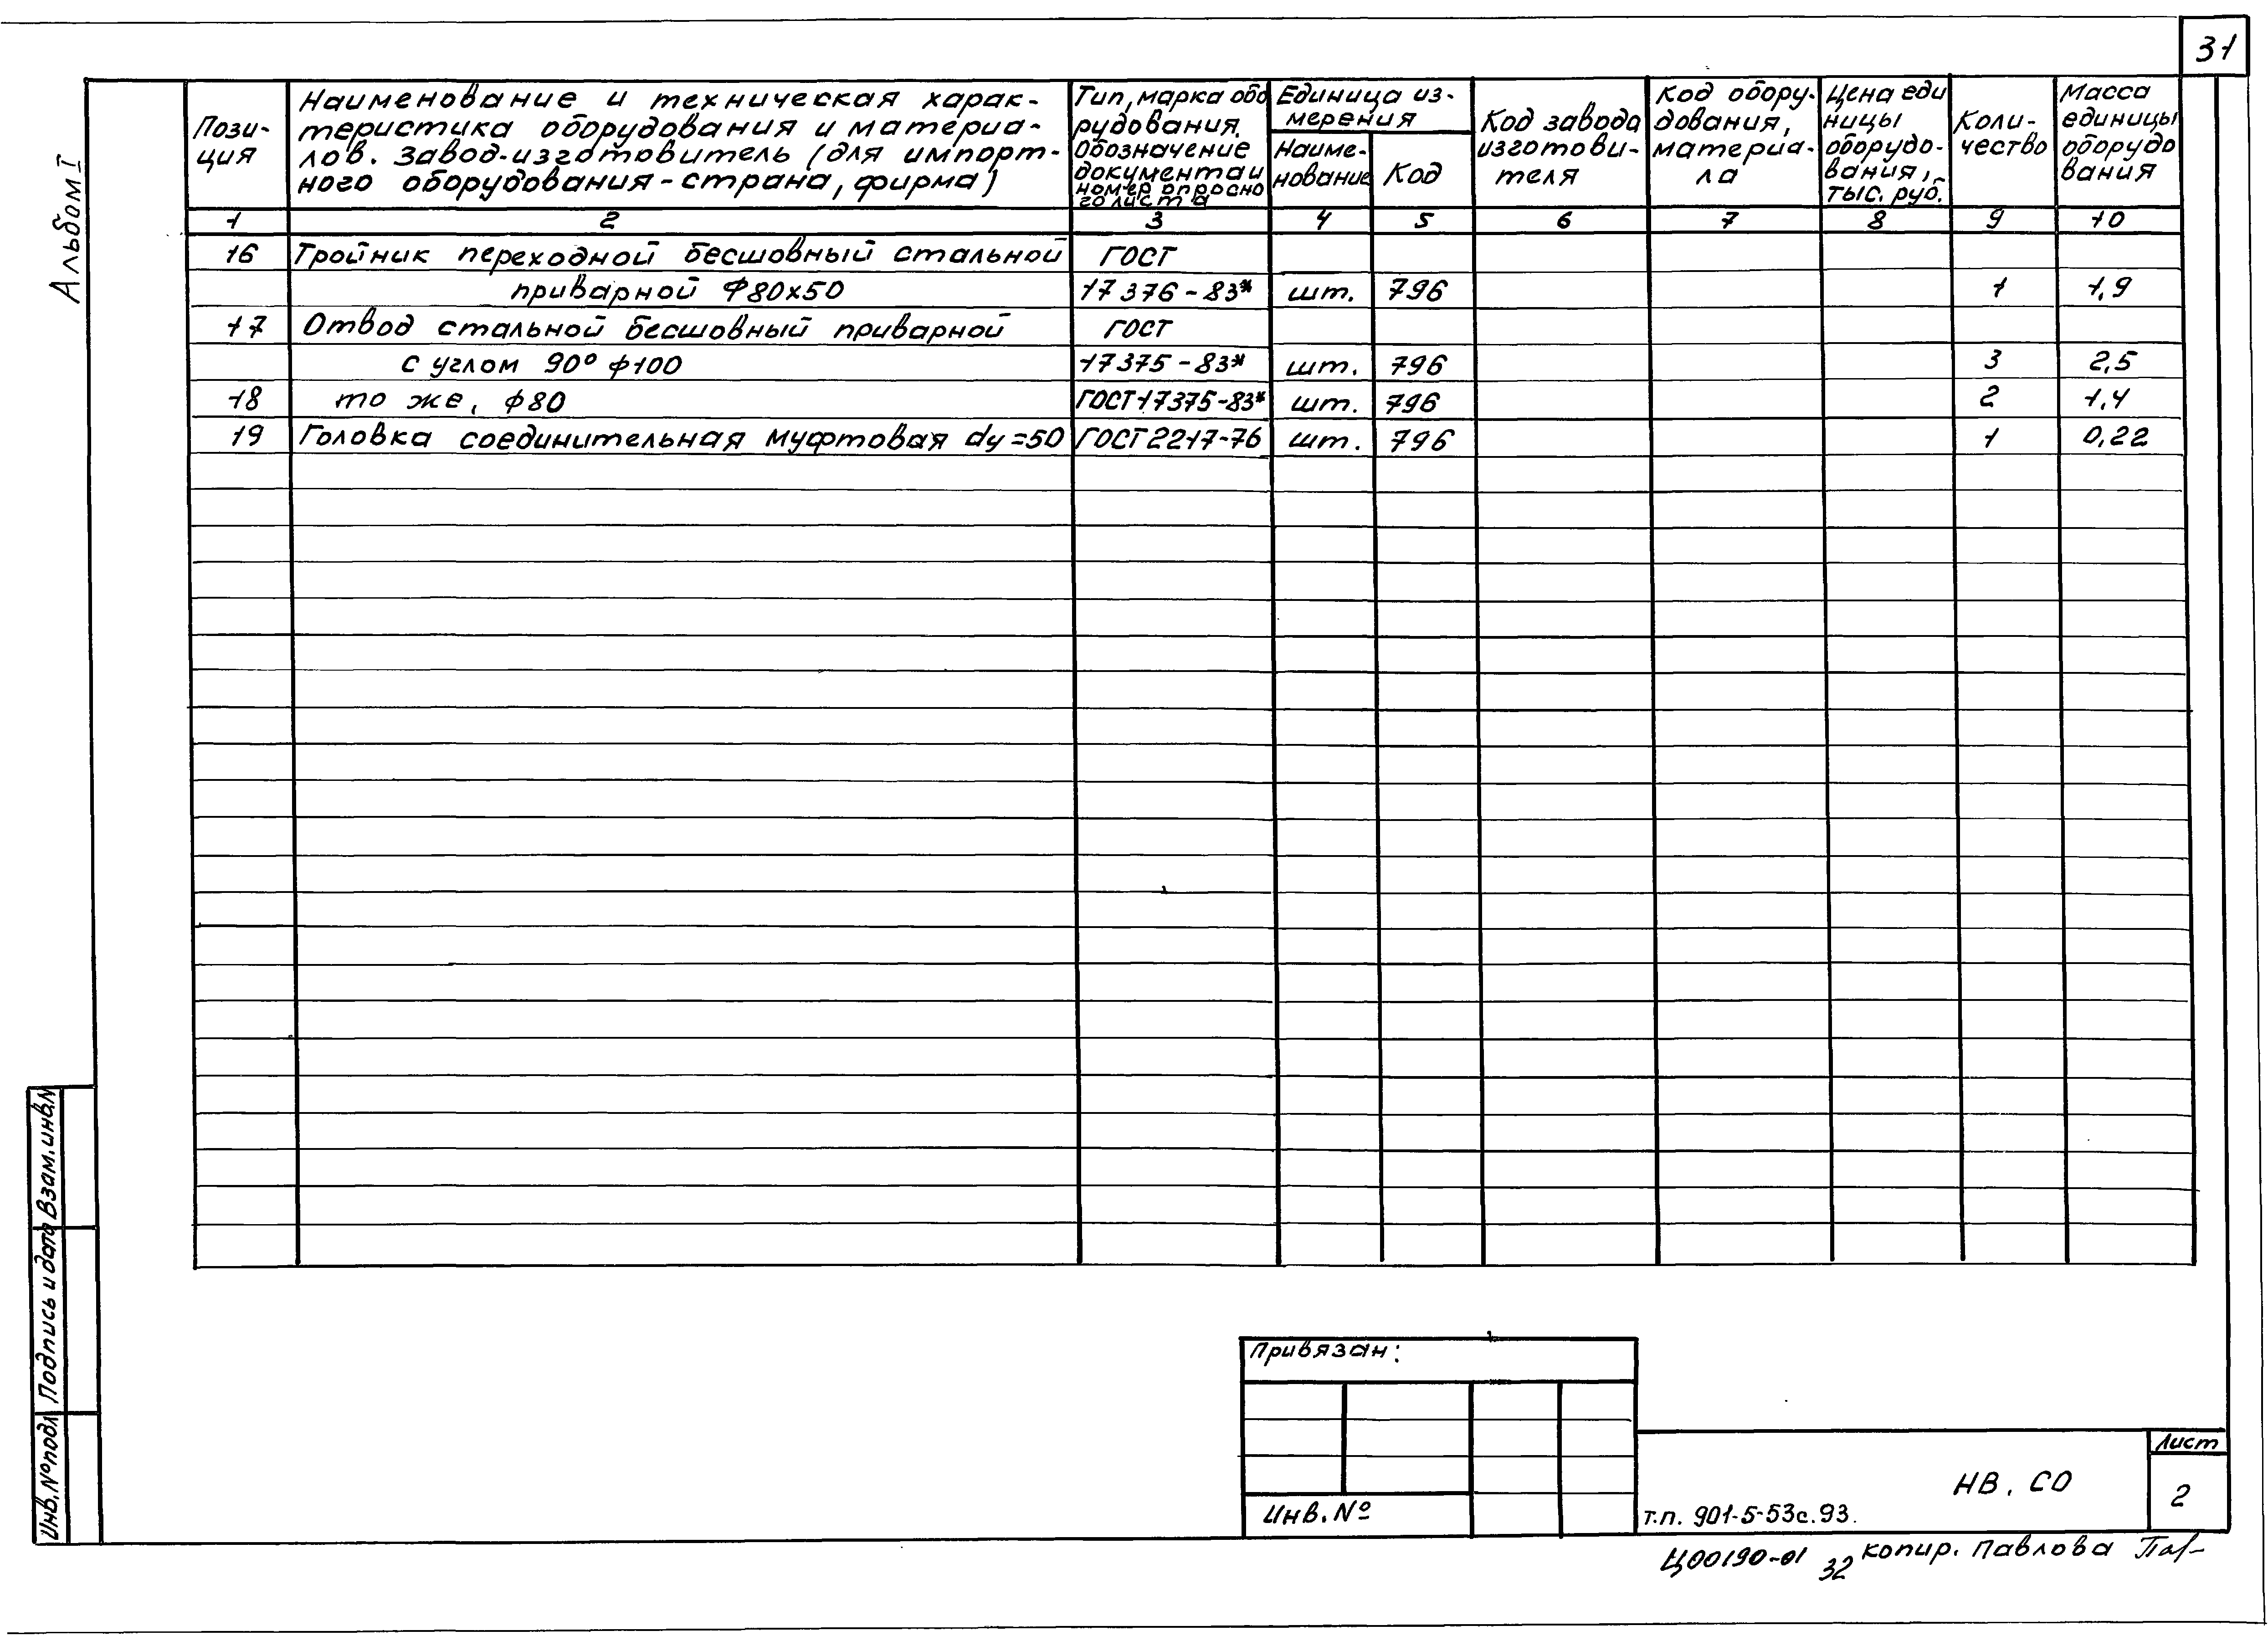 31
Альбом I
Пози-
ция
Наименование и техническая харак-
теристика оборудования и материа-
лов. Завод-изготовитель (для импорт-
ного оборудования-страна, фирма)
Тип, марка обо
рудования.
Обозначение
документа и
номер опросно
го листа
Единица из-
мерения
Наиме-
нование
Код
Код завода
изготови-
теля
Код обору-
дования,
материа-
ла
Цена еди
ницы
оборудо-
вания,
тыс. руб.
Коли-
чество
Масса
единицы
оборудо
вания
1 2 3 4 5 6 7 8 9 10
16 Тройник переходной бесшовный стальной ГОСТ
приварной Ф80х50 17376-83* шт. 796 1 1,9
17 Отвод стальной бесшовный приварной ГОСТ
с углом 90° ф100 17375-83* шт. 796 3 2,5
18 то же, ф80 ГОСТ17375-83* шт. 796 2 1,4
19 Головка соединительная муфтовая dy=50 ГОСТ2217-76 шт. 796 1 0,22
Взам.инв.N
Подпись и дата
Инв.№подл
Привязан:
Инв.№
т.п. 901-5-53с.93.
НВ. СО
Лист
2
Ц00190-01 32 копир. Павлова Пав